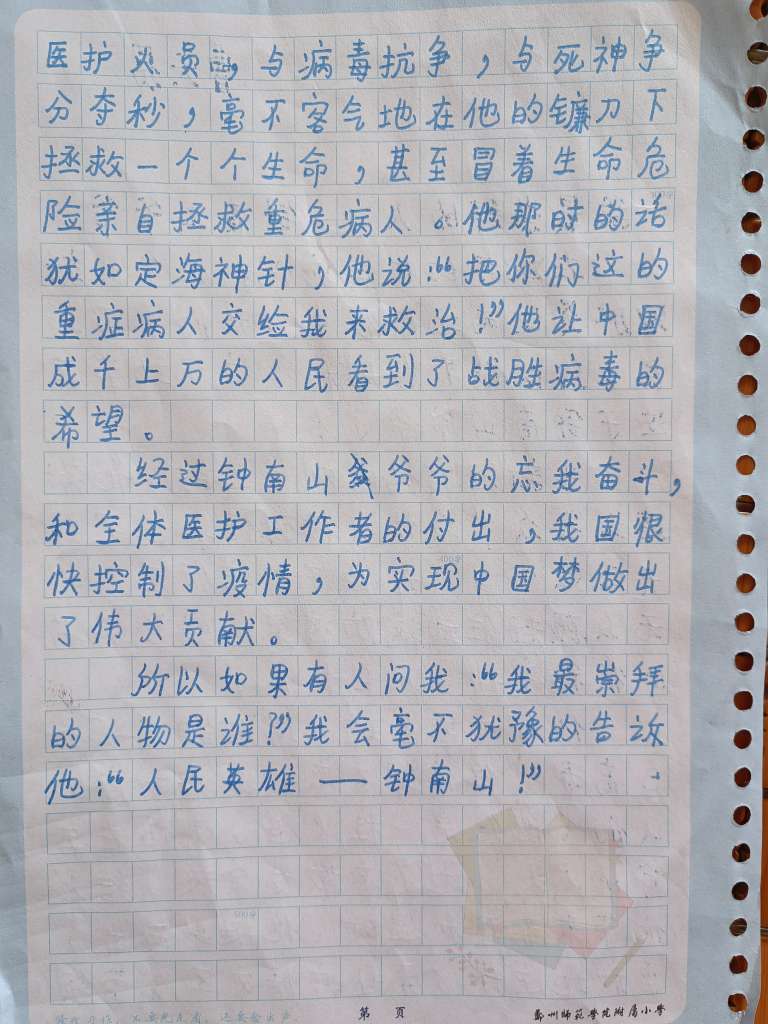 医护人员，与病毒抗争，与死神争
分夺秒，毫不客气地在他的镰刀下
拯救一个个生命，甚至冒着生命危
险亲自拯救重危病人。他那时的话
犹如定海神针，他说：“把你们这的
重症病人交给我来救治！”他让中国
成千上万的人民看到了战胜病毒的
希望。
经过钟南山爷爷的忘我奋斗，
和全体医护工作者的付出，我国很
快控制了疫情，为实现中国梦做出
了伟大贡献。
所以如果有人问我：“我最崇拜
的人物是谁？”我会毫不犹豫的告诉
他：“人民英雄——钟南山！”
500字
第 页
郑州师范学院附属小学